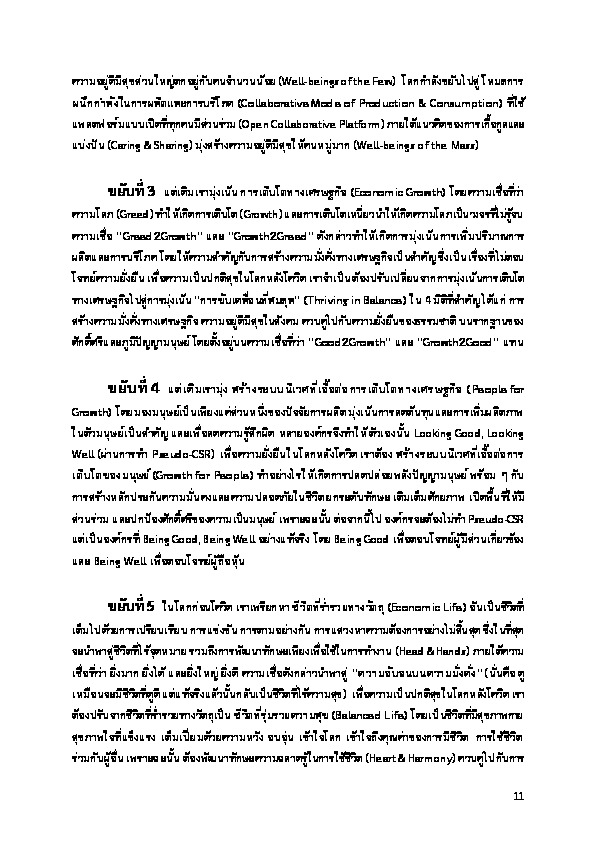 ความอยู่ดีมีสุขส่วนใหญ่ตกอยู่กับคนจำนวนน้อย (Well-beings of the Few) โลกกำลังขยับไปสู่ โหมดการ
ผนึกกำลังในการผลิตและการบริโภค (Collaborative Mode of Production & Consumption) ที่ใช้
แพลตฟอร์มแบบเปิดที่ทุกคนมีส่วนร่วม (Open Collaborative Platform) ภายใต้แนวคิดของการเกื้อกูลและ
แบ่งปัน (Caring & Sharing) มุ่งสร้างความอยู่ดีมีสุขให้คนหมู่มาก (Well-beings of the Mass)
ขยับที่ 3 แต่เดิมเรามุ่งเน้น การเติบโตทางเศรษฐกิจ (Economic Growth) โดยความเชื่อที่ว่า
ความโลภ (Greed) ทำให้เกิดการเติบโต (Growth) และการเติบโตเหนี่ยวนำให้เกิดความโลภเป็นวงจรที่ไม่รู้จบ
ความเชื่อ "Greed2Growth" และ "Growth2Greed" ดังกล่าวทำให้เกิดการมุ่งเน้นการเพิ่มปริมาณการ
ผลิตและการบริโภค โดยให้ความสำคัญกับการสร้างความมั่งคั่งทางเศรษฐกิจเป็นสำคัญ ซึ่งเป็นเรื่องที่ไม่ตอบ
โจทย์ความยั่งยืน เพื่อความเป็นปกติสุขในโลกหลังโควิด เราจำเป็นต้องปรับเปลี่ยนจากการมุ่งเน้นการเติบโต
ทางเศรษฐกิจไปสู่การมุ่งเน้น "การขับเคลื่อนที่สมดุล" (Thriving in Balance) ใน 4 มิติที่สำคัญได้แก่ การ
สร้างความมั่งคั่งทางเศรษฐกิจ ความอยู่ดีมีสุขในสังคม ควบคู่ไปกับความยั่งยืนของธรรมชาติ บนรากฐานของ
ศักดิ์ศรีและภูมิปัญญามนุษย์ โดยตั้งอยู่บนความเชื่อที่ว่า "Good2Growth" และ "Growth2Good" แทน
ขยับที่ 4 แต่เดิมเรามุ่ง สร้างระบบนิเวศที่เอื้อต่อ การเติบโตทางเศรษฐกิจ (People for
Growth) โดยมองมนุษย์เป็นเพียงแค่ส่วนหนึ่งของปัจจัยการผลิต มุ่งเน้นการลดต้นทุนและการเพิ่มผลิตภาพ
ในตัวมนุษย์เป็นสำคัญ และเพื่อลดความรู้สึกผิด หลายองค์กรจึงทำให้ตัวเองนั้น Looking Good, Looking
Well (ผ่านการทำ Pseudo-CSR) เพื่อความยั่งยืนในโลกหลังโควิด เราต้อง สร้างระบบนิเวศที่เอื้อต่อการ
เติบโตของมนุษย์ (Growth for People) ทำอย่างไรให้เกิดการปลดปล่อยพลังปัญญามนุษย์ พร้อม ๆ กับ
การสร้างหลักประกันความมั่นคงและความปลอดภัยในชีวิต ยกระดับทักษะ เติมเต็มศักยภาพ เปิดพื้นที่ให้มี
ส่วนร่วม และปกป้องศักดิ์ศรีของความเป็นมนุษย์ เพราะฉะนั้น ต่อจากนี้ไป องค์กรจะต้องไม่ทำ Pseudo-CSR
แต่เป็นองค์กรที่ Being Good, Being Well อย่างแท้จริง โดย Being Good เพื่อตอบโจทย์ผู้มีส่วนเกี่ยวข้อง
และ Being Well เพื่อตอบโจทย์ผู้ถือหุ้น
ขยับที่ 5 ในโลกก่อนโควิด เราเพรียกหา ชีวิตที่ร่ำรวยทางวัตถุ (Economic Life) อันเป็นชีวิตที่
เต็มไปด้วยการเปรียบเทียบ การแข่งขัน การตามอย่างกัน การแสวงหาความต้องการอย่างไม่สิ้นสุด ซึ่งในที่สุด
จะนำพาสู่ชีวิตที่ไร้จุดหมาย รวมถึงการพัฒนาทักษะเพียงเพื่อใช้ในการทำงาน (Head & Hands) ภายใต้ความ
เชื่อที่ว่า ยิ่งมาก ยิ่งได้ และยิ่งใหญ่ ยิ่งดี ความเชื่อดังกล่าวนำพาสู่ "ความอับจนบนความมั่งคั่ง" (นั่นคือ ดู
เหมือนจะมีชีวิตที่ดูดี แต่แท้จริงแล้วนั้นกลับเป็นชีวิตที่ไร้ความสุข) เพื่อความเป็นปกติสุขในโลกหลังโควิด เรา
ต้องปรับจากชีวิตที่ร่ำรวยทางวัตถุเป็น ชีวิตที่รุ่มรวยความสุข (Balanced Life) โดยเป็นชีวิตที่มีสุขภาพกาย
สุขภาพใจที่แข็งแรง เต็มเปี่ยมด้วยความหวัง อบอุ่น เข้าใจโลก เข้าใจถึงคุณค่าของการมีชีวิต การใช้ชีวิต
ร่วมกับผู้อื่น เพราะฉะนั้น ต้องพัฒนาทักษะความฉลาดรู้ในการใช้ชีวิต (Heart & Harmony) ควบคู่ไปกับการ
11